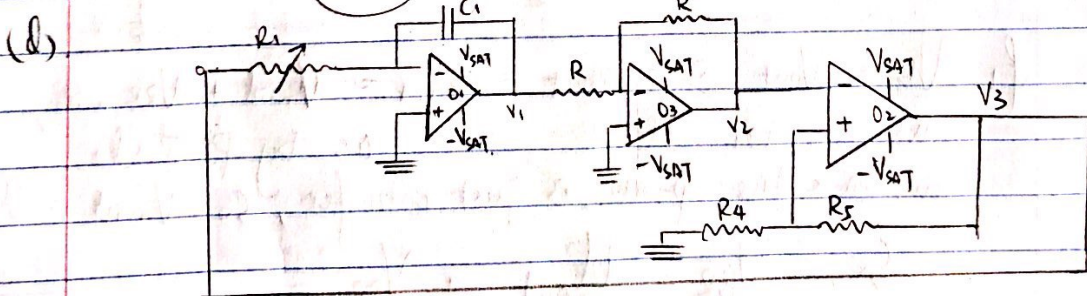 (d)
R1
C1
VSAT
-
O1
+
-VSAT
V1
R
R
VSAT
-
O3
+
-VSAT
V2
VSAT
-
O2
+
-VSAT
V3
R4
R5